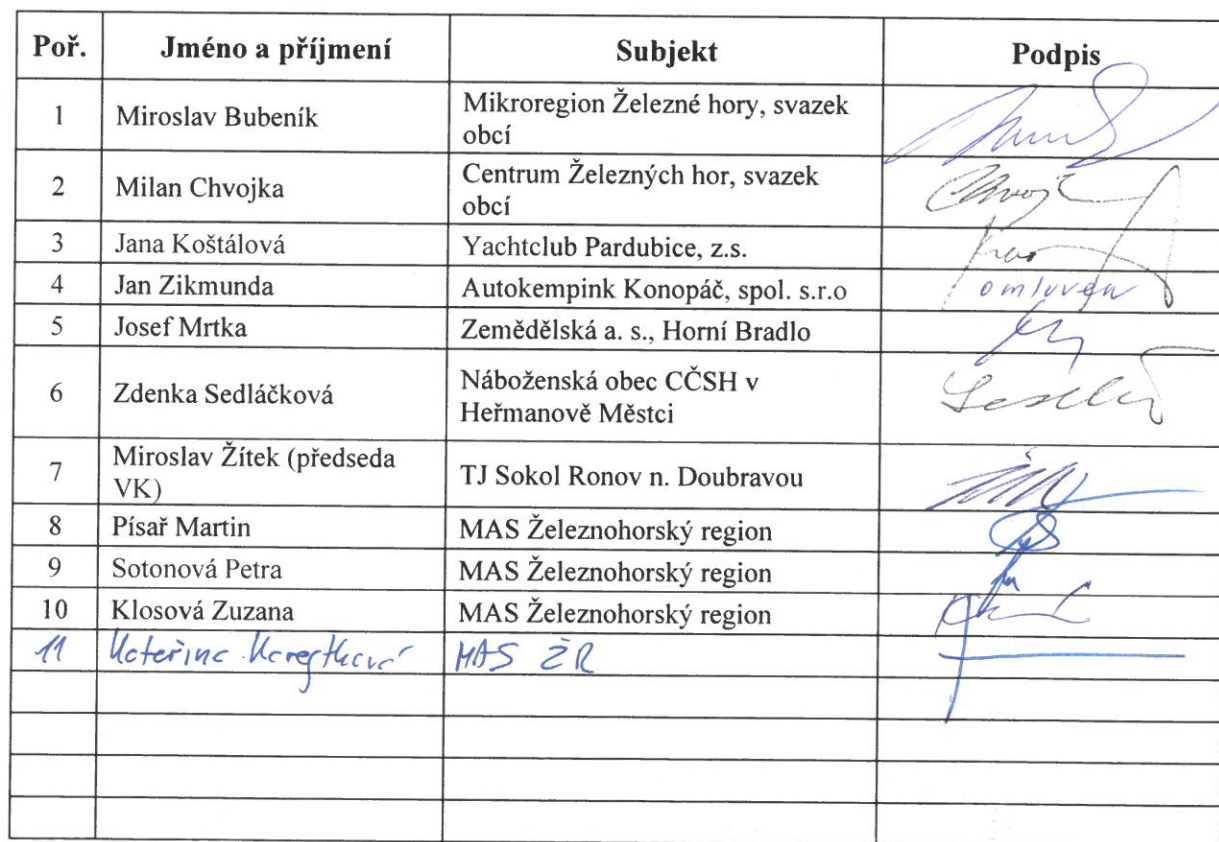 Poř. Jméno a příjmení Subjekt Podpis
1 Miroslav Bubeník Mikroregion Železné hory, svazek
obcí
2 Milan Chvojka Centrum Železných hor, svazek
obcí
3 Jana Koštálová Yachtclub Pardubice, z.s.
4 Jan Zikmunda Autokempink Konopáč, spol. s.r.o omluven
5 Josef Mrtka Zemědělská a. s., Horní Bradlo
6 Zdenka Sedláčková Náboženská obec CČSH v
Heřmanově Městci
7 Miroslav Žítek (předseda
VK) TJ Sokol Ronov n. Doubravou
8 Písař Martin MAS Železnohorský region
9 Sotonová Petra MAS Železnohorský region
10 Klosová Zuzana MAS Železnohorský region
11 Kateřina MAS ŽR